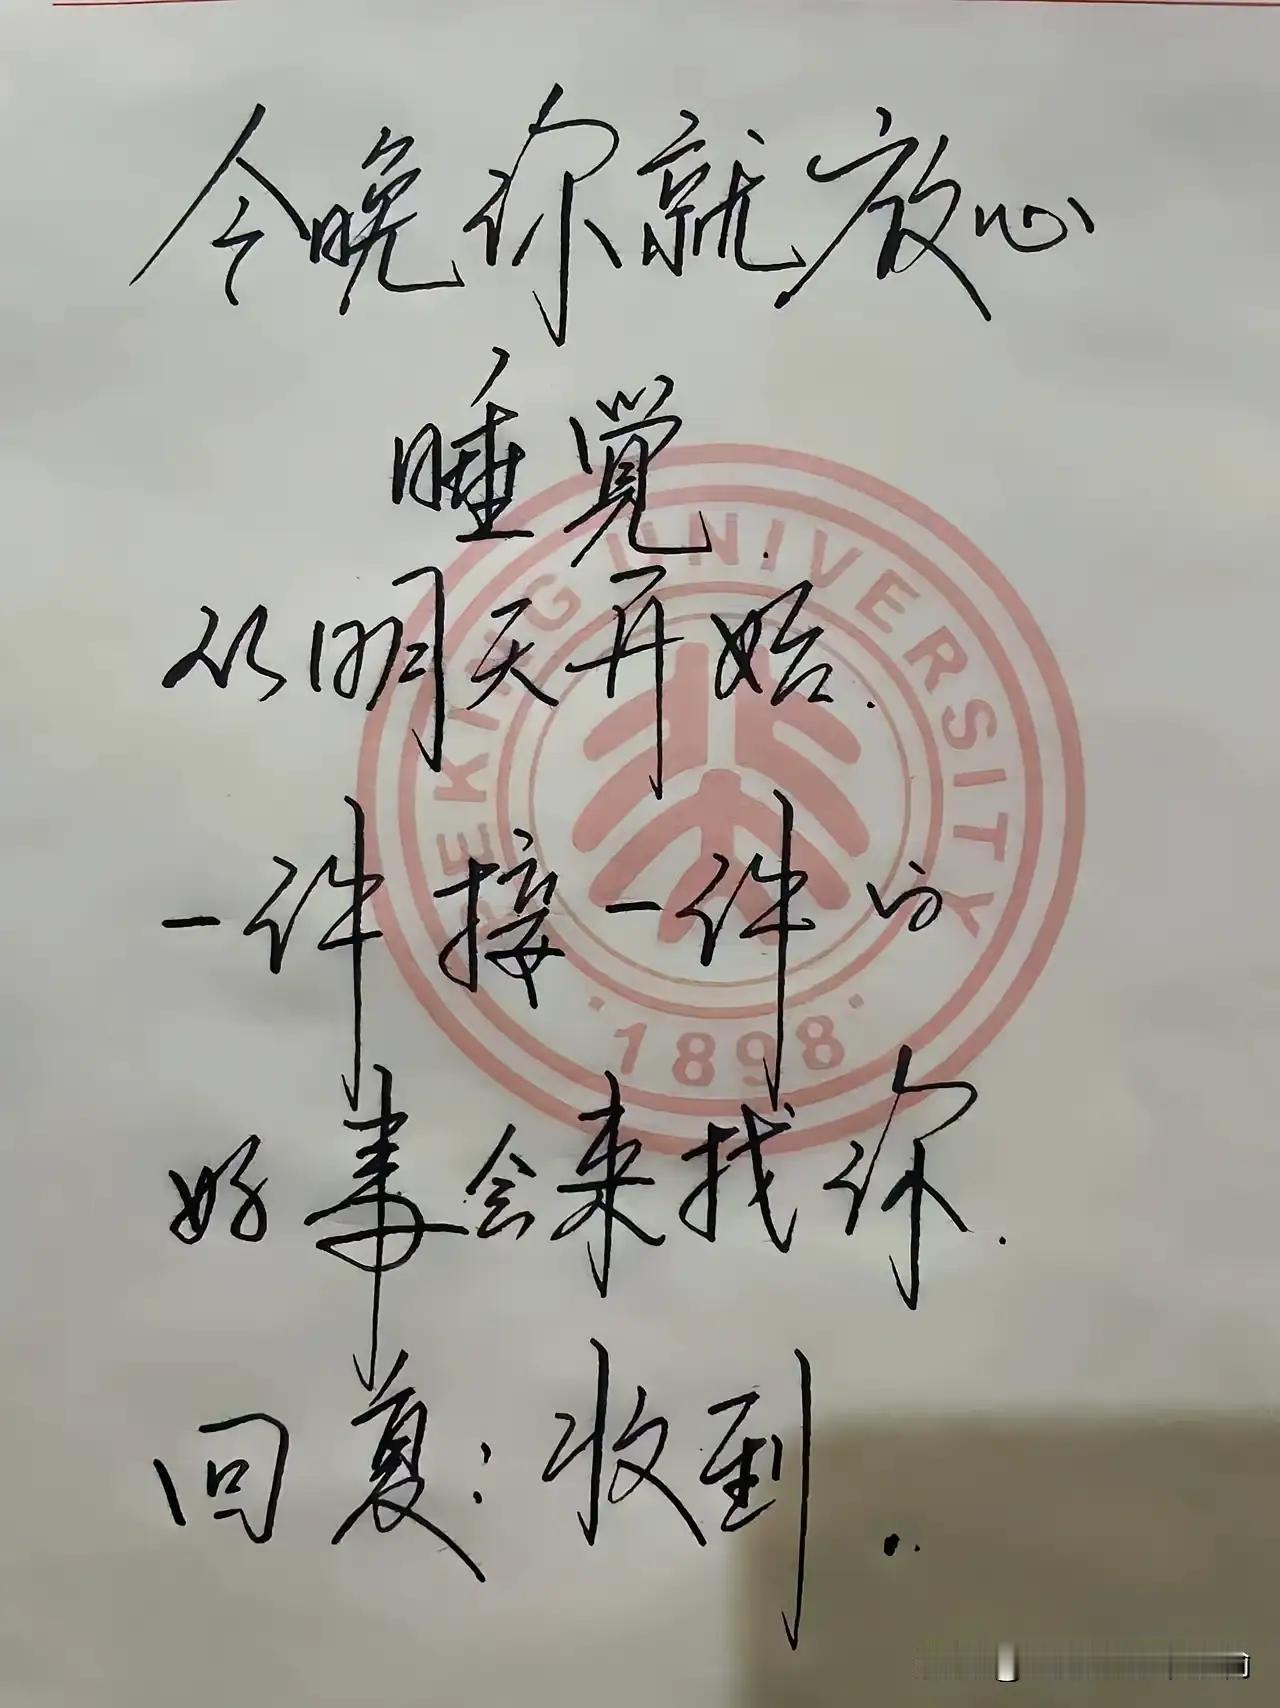 今晚你就放心
睡觉.
从明天开始.
一件接一件的
好事会来找你.
回复:收到..
PEKING UNIVERSITY
·1898·